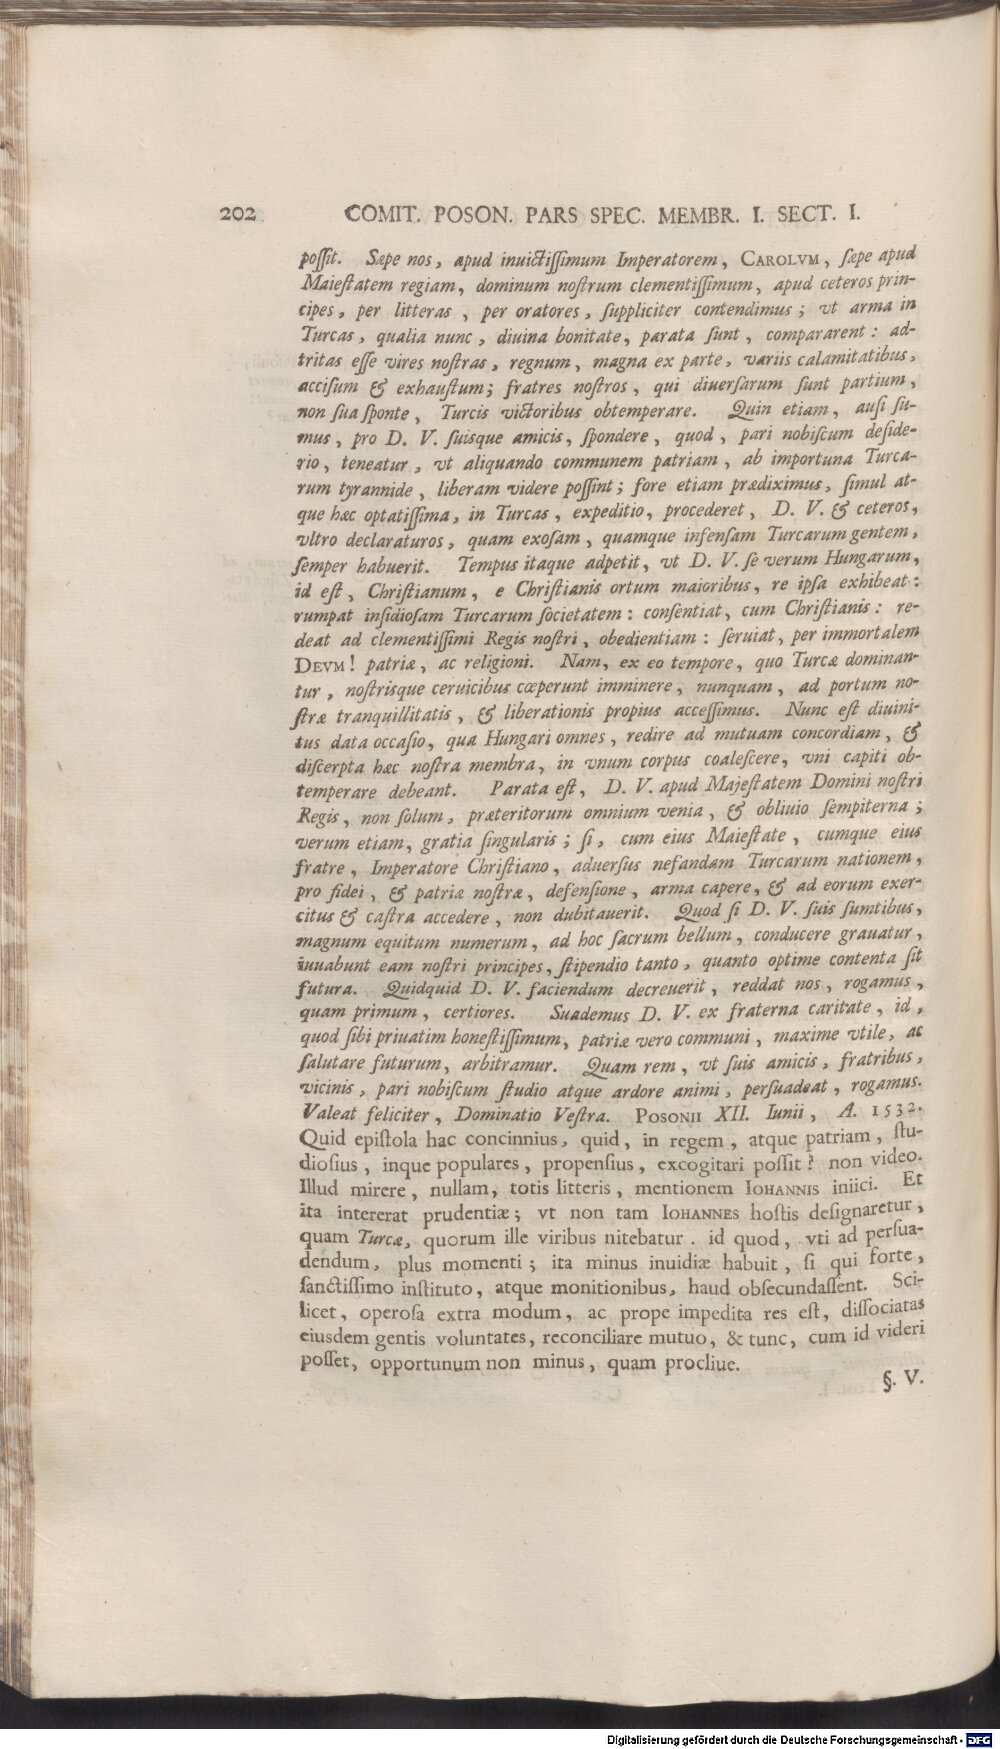 202 COMIT. POSON. PARS SPEC. MEMBR. I. SECT. I.
poſſit. Sæpe nos, apud inuictiſſimum Imperatorem, CAROLVM, ſæpe apud
Maieſtatem regiam, dominum noſtrum clementiſſimum, apud ceteros prin-
cipes, per litteras, per oratores, ſuppliciter contendimus; vt arma in
Turcas, qualia nunc, diuina bonitate, parata ſunt, compararent: ad-
tritas eſſe vires noſtras, regnum, magna ex parte, variis calamitatibus,
acciſum & exhauſtum; fratres noſtros, qui diuerſarum ſunt partium,
non ſua ſponte, Turcis victoribus obtemperare. Quin etiam, auſi ſu-
mus, pro D. V. ſuisque amicis, ſpondere, quod, pari nobiſcum deſide-
rio, teneatur, vt aliquando communem patriam, ab importuna Turca-
rum tyrannide, liberam videre poſſint; fore etiam prædiximus, ſimul at-
que hæc optatiſſima, in Turcas, expeditio, procederet, D. V. & ceteros,
vltro declaraturos, quam exoſam, quamque infenſam Turcarum gentem,
ſemper habuerit. Tempus itaque adpetit, vt D. V. ſe verum Hungarum,
id eſt, Chriſtianum, e Chriſtianis ortum maioribus, re ipſa exhibeat:
rumpat inſidioſam Turcarum ſocietatem: conſentiat, cum Chriſtianis: re-
deat ad clementiſſimi Regis noſtri, obedientiam: ſeruiat, per immortalem
DEVM! patriæ, ac religioni. Nam, ex eo tempore, quo Turcæ dominan-
tur, noſtrisque ceruicibus cœperunt imminere, nunquam, ad portum no-
ſtræ tranquillitatis, & liberationis propius acceſſimus. Nunc eſt diuini-
tus data occaſio, qua Hungari omnes, redire ad mutuam concordiam, &
diſcerpta hæc noſtra membra, in vnum corpus coaleſcere, vni capiti ob-
temperare debeant. Parata eſt, D. V. apud Majeſtatem Domini noſtri
Regis, non ſolum, præteritorum omnium venia, & obliuio ſempiterna;
verum etiam, gratia ſingularis; ſi, cum eius Maieſtate, cumque eius
fratre, Imperatore Chriſtiano, aduerſus nefandam Turcarum nationem,
pro fidei, & patriæ noſtræ, defenſione, arma capere, & ad eorum exer-
citus & caſtra accedere, non dubitauerit. Quod ſi D. V. ſuis ſumtibus,
magnum equitum numerum, ad hoc ſacrum bellum, conducere grauatur,
iuuabunt eam noſtri principes, ſtipendio tanto, quanto optime contenta ſit
futura. Quidquid D. V. faciendum decreuerit, reddat nos, rogamus,
quam primum, certiores. Suademus D. V. ex fraterna caritate, id,
quod ſibi priuatim honeſtiſſimum, patriæ vero communi, maxime vtile, ac
ſalutare futurum, arbitramur. Quam rem, vt ſuis amicis, fratribus,
vicinis, pari nobiſcum ſtudio atque ardore animi, perſuadeat, rogamus.
Valeat feliciter, Dominatio Veſtra. POSONII XII. Iunii, A. 1532.
Quid epiſtola hac concinnius, quid, in regem, atque patriam, ſtu-
dioſius, inque populares, propenſius, excogitari poſſit? non video.
Illud mirere, nullam, totis litteris, mentionem IOHANNIS iniici. Et
ita intererat prudentiæ; vt non tam IOHANNES hoſtis deſignaretur,
quam Turcæ, quorum ille viribus nitebatur. id quod, vti ad perſua-
dendum, plus momenti; ita minus inuidiæ habuit, ſi qui forte,
ſanctiſſimo inſtituto, atque monitionibus, haud obſecundaſſent. Sci-
licet, operoſa extra modum, ac prope impedita res eſt, diſſociatas
eiusdem gentis voluntates, reconciliare mutuo, & tunc, cum id videri
poſſet, opportunum non minus, quam procliue.
§. V.
Digitalisierung gefördert durch die Deutsche Forschungsgemeinschaft - DFG